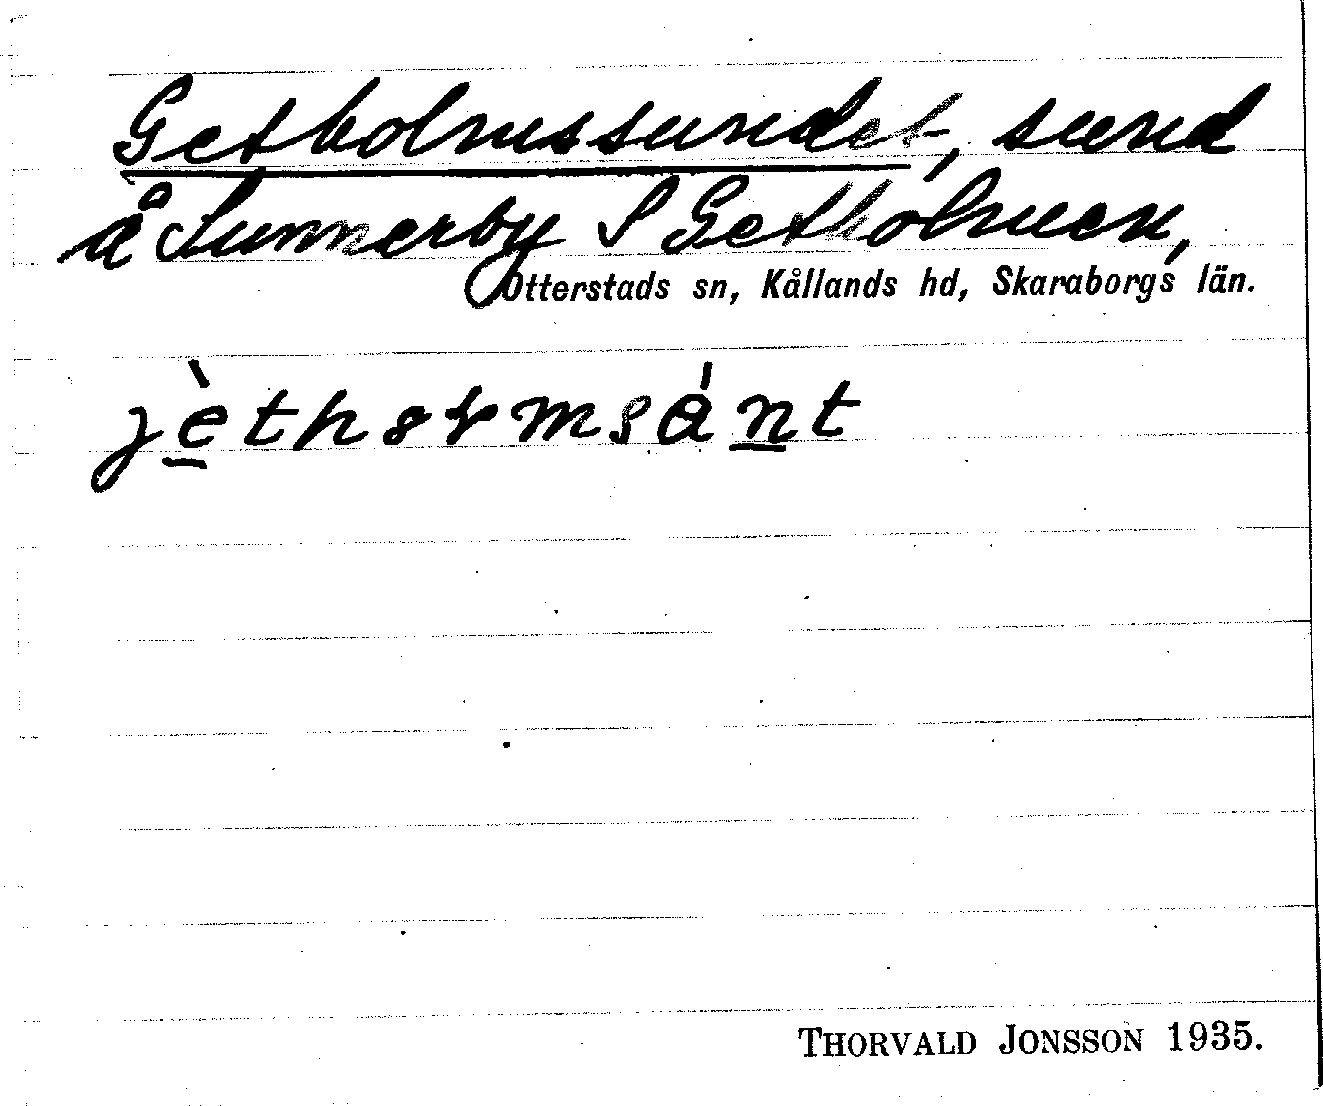 Getholmssundet, sund
å Sunnerby S Getholmen,
Otterstads sn, Kållands hd, Skaraborgs län.
THORVALD JONSSON 1935.